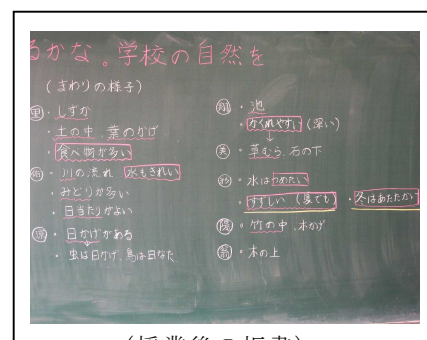 るかな。学校の自然を
(まわりの様子)
・しずか
・土の中、葉のかげ
・食べ物が多い
・川の流れ 水もきれい
・みどりが多い
・日当たりがよい
・日かげがある
・虫は日かげ、鳥は日なた
・池
・かくれやすい(深い)
・草むら、石の下
・水はつめたい
・すずしい(夏でも) ・冬はあたたかい
・竹の中、木かげ
・木の上
(授業後の板書)